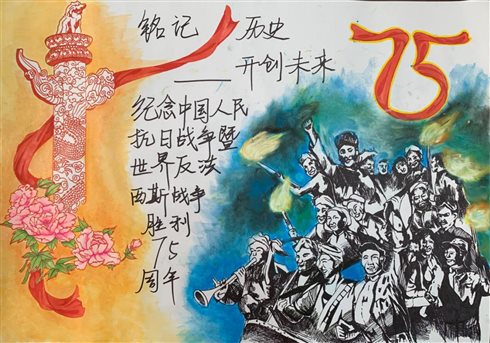 铭记 历史
——开创未来
75
纪念中国人民
抗日战争暨
世界反法
西斯战争
胜利
75
周年